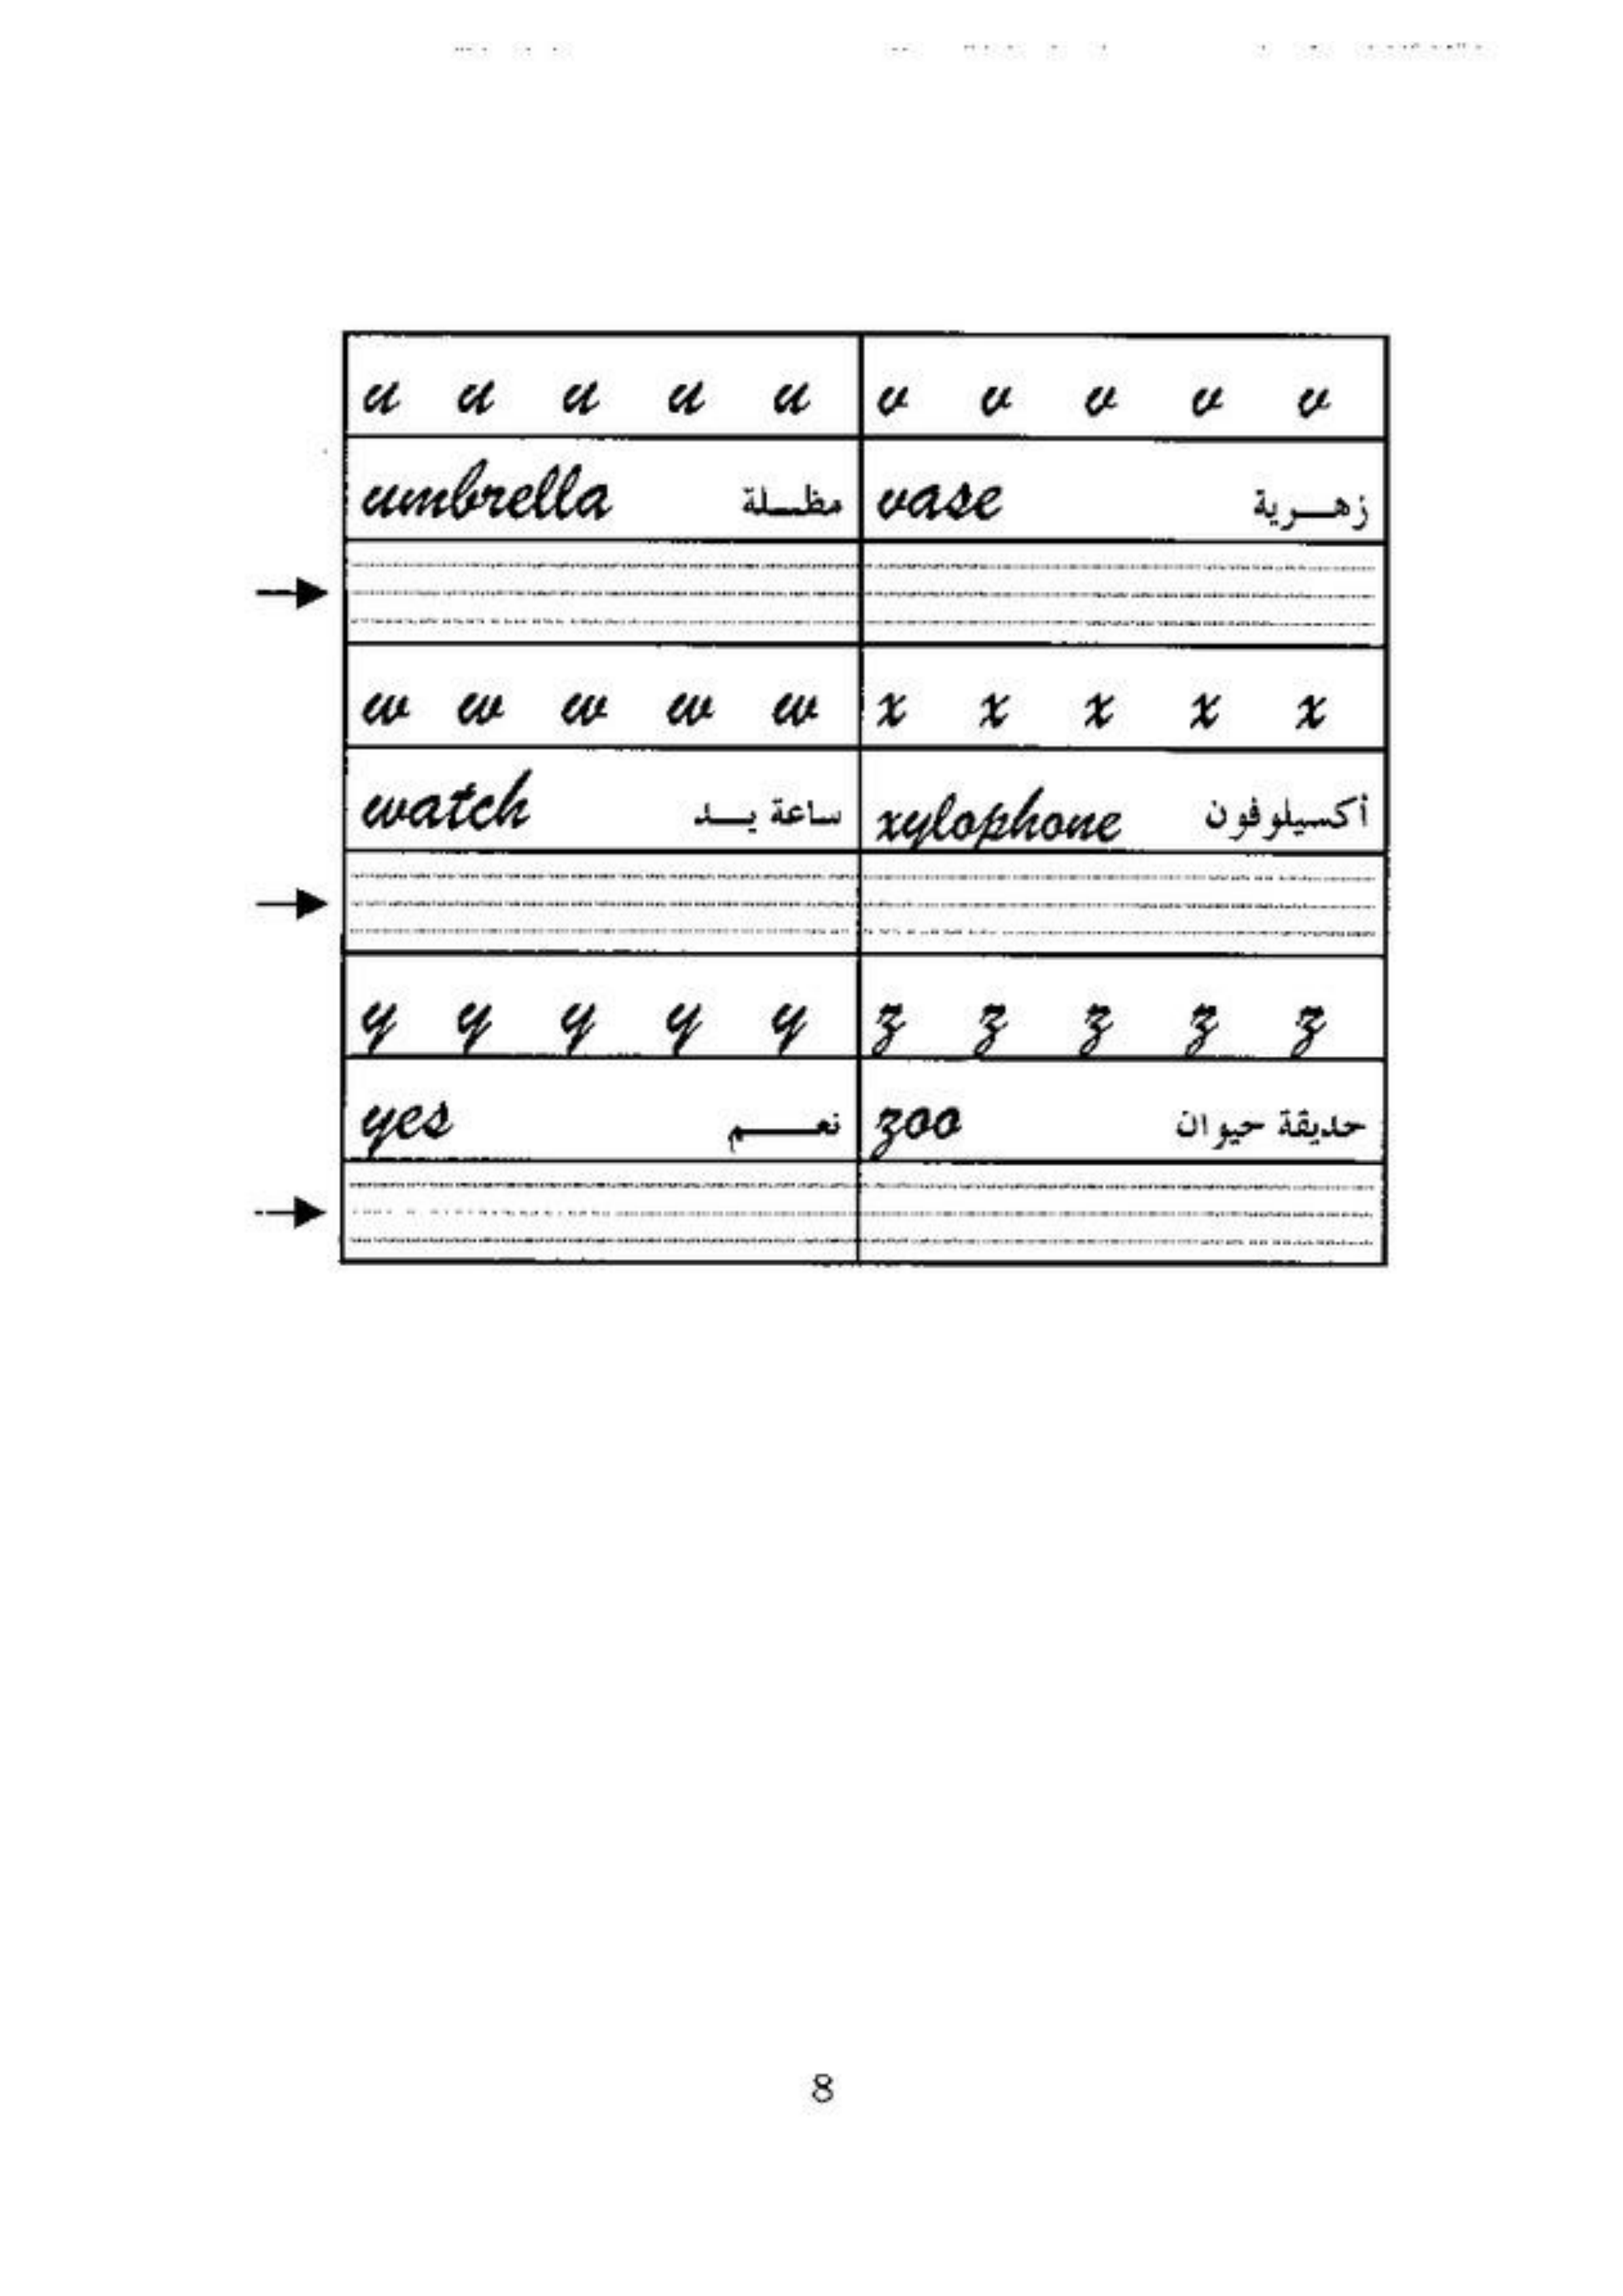 u u u u u v v v v v
umbrella مظلة vase زهرية
w w w w w x x x x x
watch ساعة يد xylophone أكسيلوفون
y y y y y z z z z z
yes نعم zoo حديقة حيوان
8